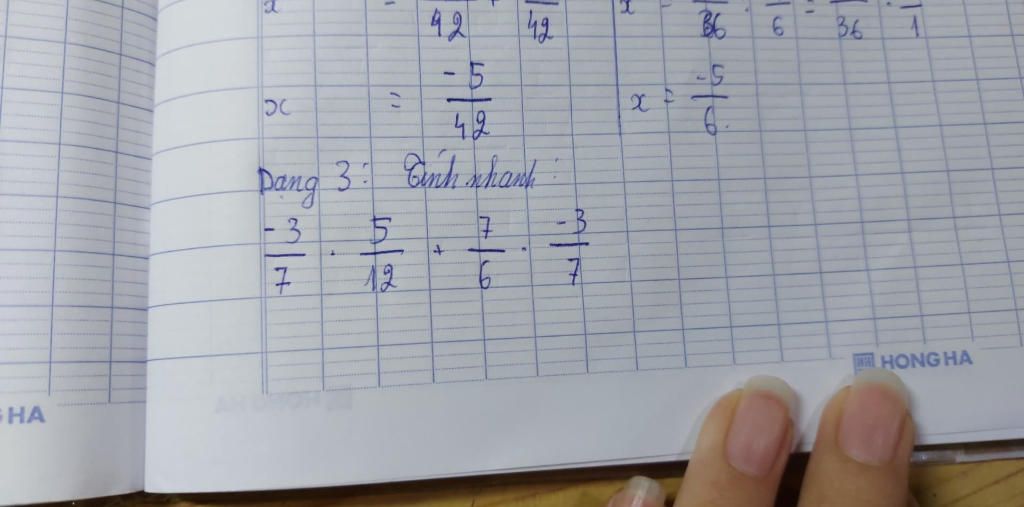 x = /42 + /42
x = /36 . /6 = /36 . /1
x = -5/42
x = -5/6.
Dạng 3: Tính nhanh:
-3/7 . 5/12 + 7/6 . -3/7
HONG HA
HONG HA